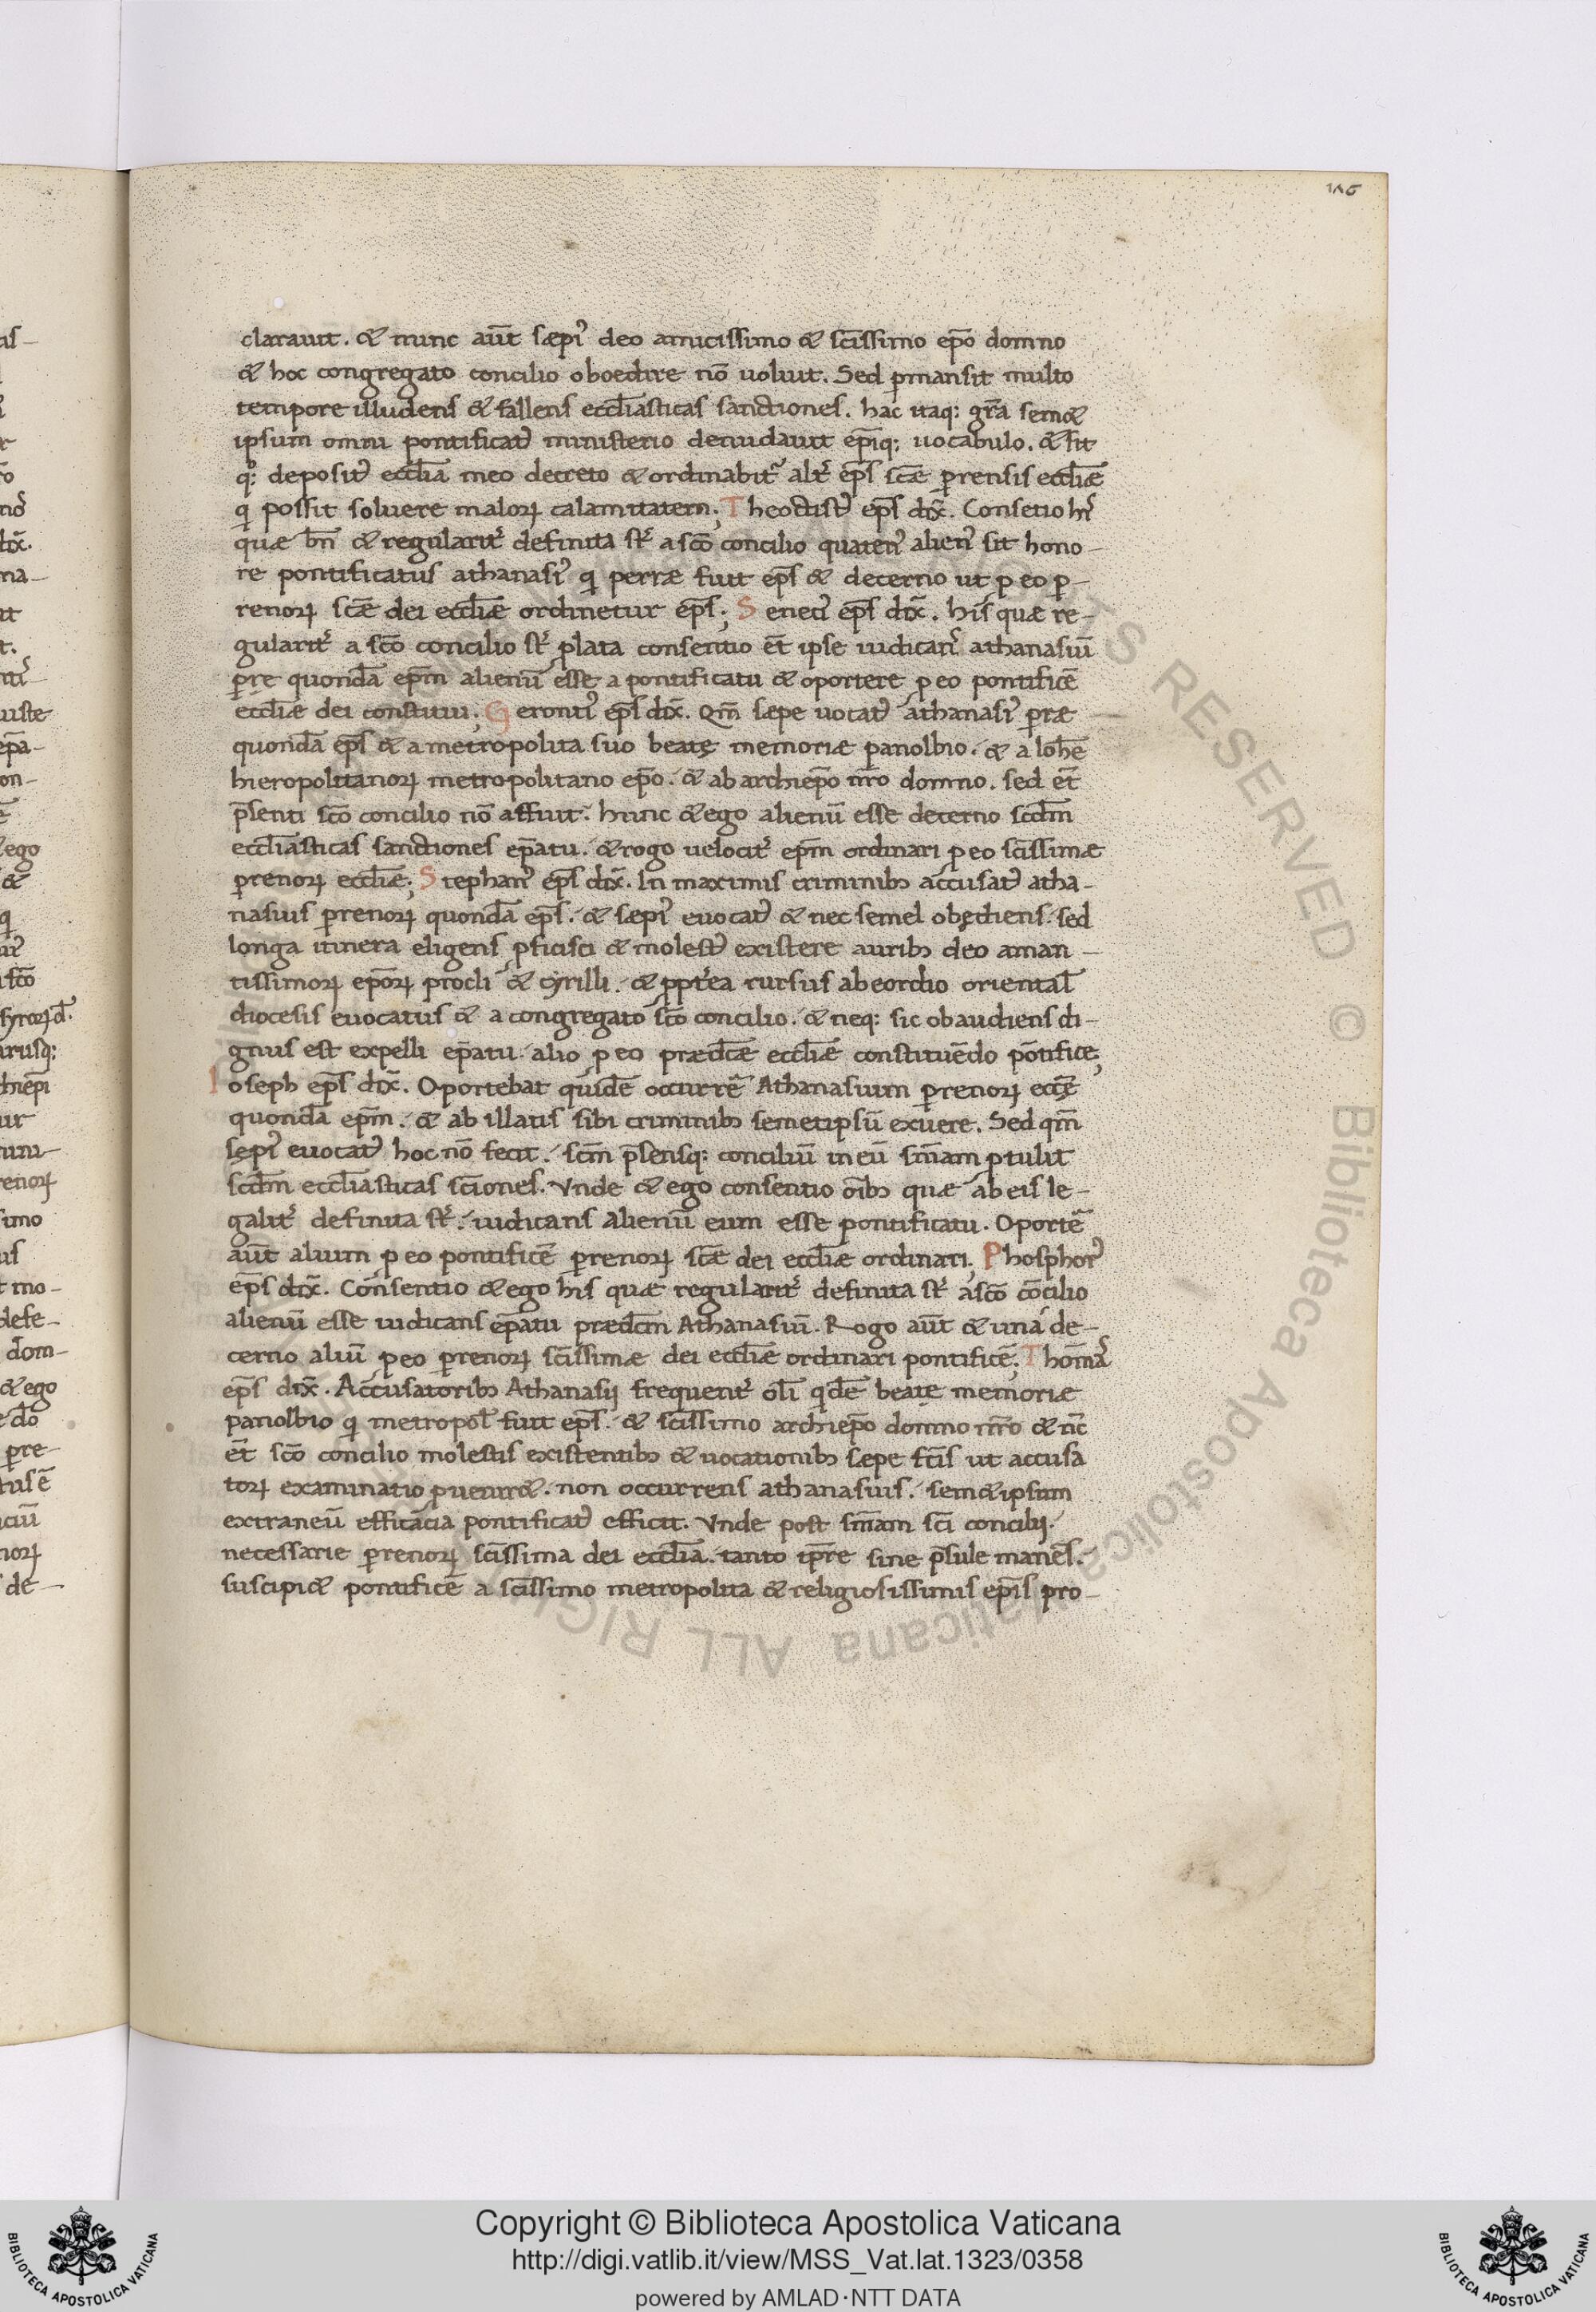 186
clarauit. & nunc aut̄ sæpi᾽ deo amicissimo & sc̄issimo ep̄o domno
& hoc congregato concilio oboedire nō uoluit. Sed ꝑmansit multo
tempore illudens & fallens eccl̄iasticas sanctiones. hac itaq: gr̄a sem&
ipsum omni pontificat᾽ ministerio denudauit ep̄iq: uocabulo. & sit
q: deposit᾽ eccl̄ia meo decreto & ordinabit᾽ alt᾽ ep̄s sc̄æ ꝑrensis eccl̄iæ
q̇ possit soluere maloꝝ calamitatem; Theoctist᾽ ep̄s dix̄. Consētio hi᾽
quæ bn̄ & regularit᾽ definita st᾽ a sc̄o concilio quaten᾽ alien᾽ sit hono-
re pontificatus athanasi᾽ q̇ perræ fuit ep̄s & decerno ut ꝓ eo ꝑ-
renoꝝ sc̄æ dei eccl̄iæ ordinetur ep̄s; Seneci᾽ ep̄s dix̄. his quæ re-
gularit᾽ a sc̄o concilio st᾽ ꝓlata consentio et̄ ipse iudican᾽ athanasiū
ꝑre quondā ep̄m alienū esse a pontificatu & oportere ꝓ eo pontificē
eccl̄iæ dei constitui; Geronti᾽ ep̄s dix̄. Qm̄ sæpe uocat᾽ athanasi᾽ ꝑræ
quondā ep̄s & a metropolita suo beatę memoriæ panolbio. & a ioh̄e
hieropolitanoꝝ metropolitano ep̄o. & ab archiep̄o nr̄o domno. sed et̄
p̄senti sc̄o concilio nō affuit. hunc & ego alienū esse decerno scd̄m
eccl̄iasticas sanctiones ep̄atu. & rogo uelocit᾽ ep̄m ordinari ꝓ eo sc̄issimæ
ꝑrenoꝝ eccl̄iæ; Stephan᾽ ep̄s dix̄. In maximis criminibꝫ accusat᾽ atha-
nasius ꝑrenoꝝ quondā ep̄s. & sæpi᾽ euocat᾽ & nec semel obędiens. sed
longa itinera eligens ꝓficisci & molest᾽ existere auribꝫ deo aman-
tissimoꝝ ep̄oꝝ procli & cyrilli. & ꝓpt᾽ea rursus ab eordio oriental̄
diocesis euocatus & a congregato sc̄o concilio. & neq: sic obaudiens di-
gnus est expelli ep̄atu. alio ꝓ eo prædc̄æ eccl̄iæ constituēdo pōntifice;
Ioseph ep̄s dix̄. Oportebat quidē occurre᾽ Athanasium ꝑrenoꝝ ecc̄ę
quondā ep̄m. & ab illatis sibi criminibꝫ semetipsū exuere. Sed qm̄
sępi᾽ euocat᾽ hoc nō fecit. sc̄m p̄sensq: conciliū in eū sn̄iam ꝓtulit
scd̄m eccl̄iasticas sc̄iones. Vnde & ego consentio oībꝫ quæ ab eis le-
galit᾽ definita st᾽. iudicans alienū eum esse pontificatu. Oporte᾽
aut̄ alium ꝓ eo pontificē ꝑrenoꝝ sc̄æ dei eccl̄iæ ordinari; Phosphor᾽
ep̄s dix̄. Consentio & ego his quæ regularit᾽ definita st᾽ a sc̄o cōcilio
alienū esse iudicans ep̄atu prædc̄m Athanasiū. Rogo aut̄ & una de-
cerno aliū ꝓ eo ꝑrenoꝝ sc̄issimæ dei eccl̄iæ ordinari pontificē; Thomas᾽
ep̄s dix̄. Accusatoribꝫ Athanasij frequent᾽ olī qdē beatę memoriæ
panolbio q̇ metropol̄ fuit ep̄s. & sc̄issimo archiep̄o domno nr̄o & nc̄
et̄ sc̄o concilio molestis existentibꝫ & uocationibꝫ sæpe fc̄is ut accusa
toꝝ examinatio ꝓuenir&. non occurrens athanasius. sem&ipsum
extraneū efficacia pontificat᾽ efficit. Vnde post sn̄iam sc̄i concilij.
necessarie ꝑrenoꝝ sc̄issima dei eccl̄ia. tanto tp̄re sine p̄sule manēs.
suscipi& pontificē a sc̄issimo metropolita & religiosissimis ep̄is pro-
Copyright © Biblioteca Apostolica Vaticana
http://digi.vatlib.it/view/MSS_Vat.lat.1323/0358
powered by AMLAD·NTT DATA